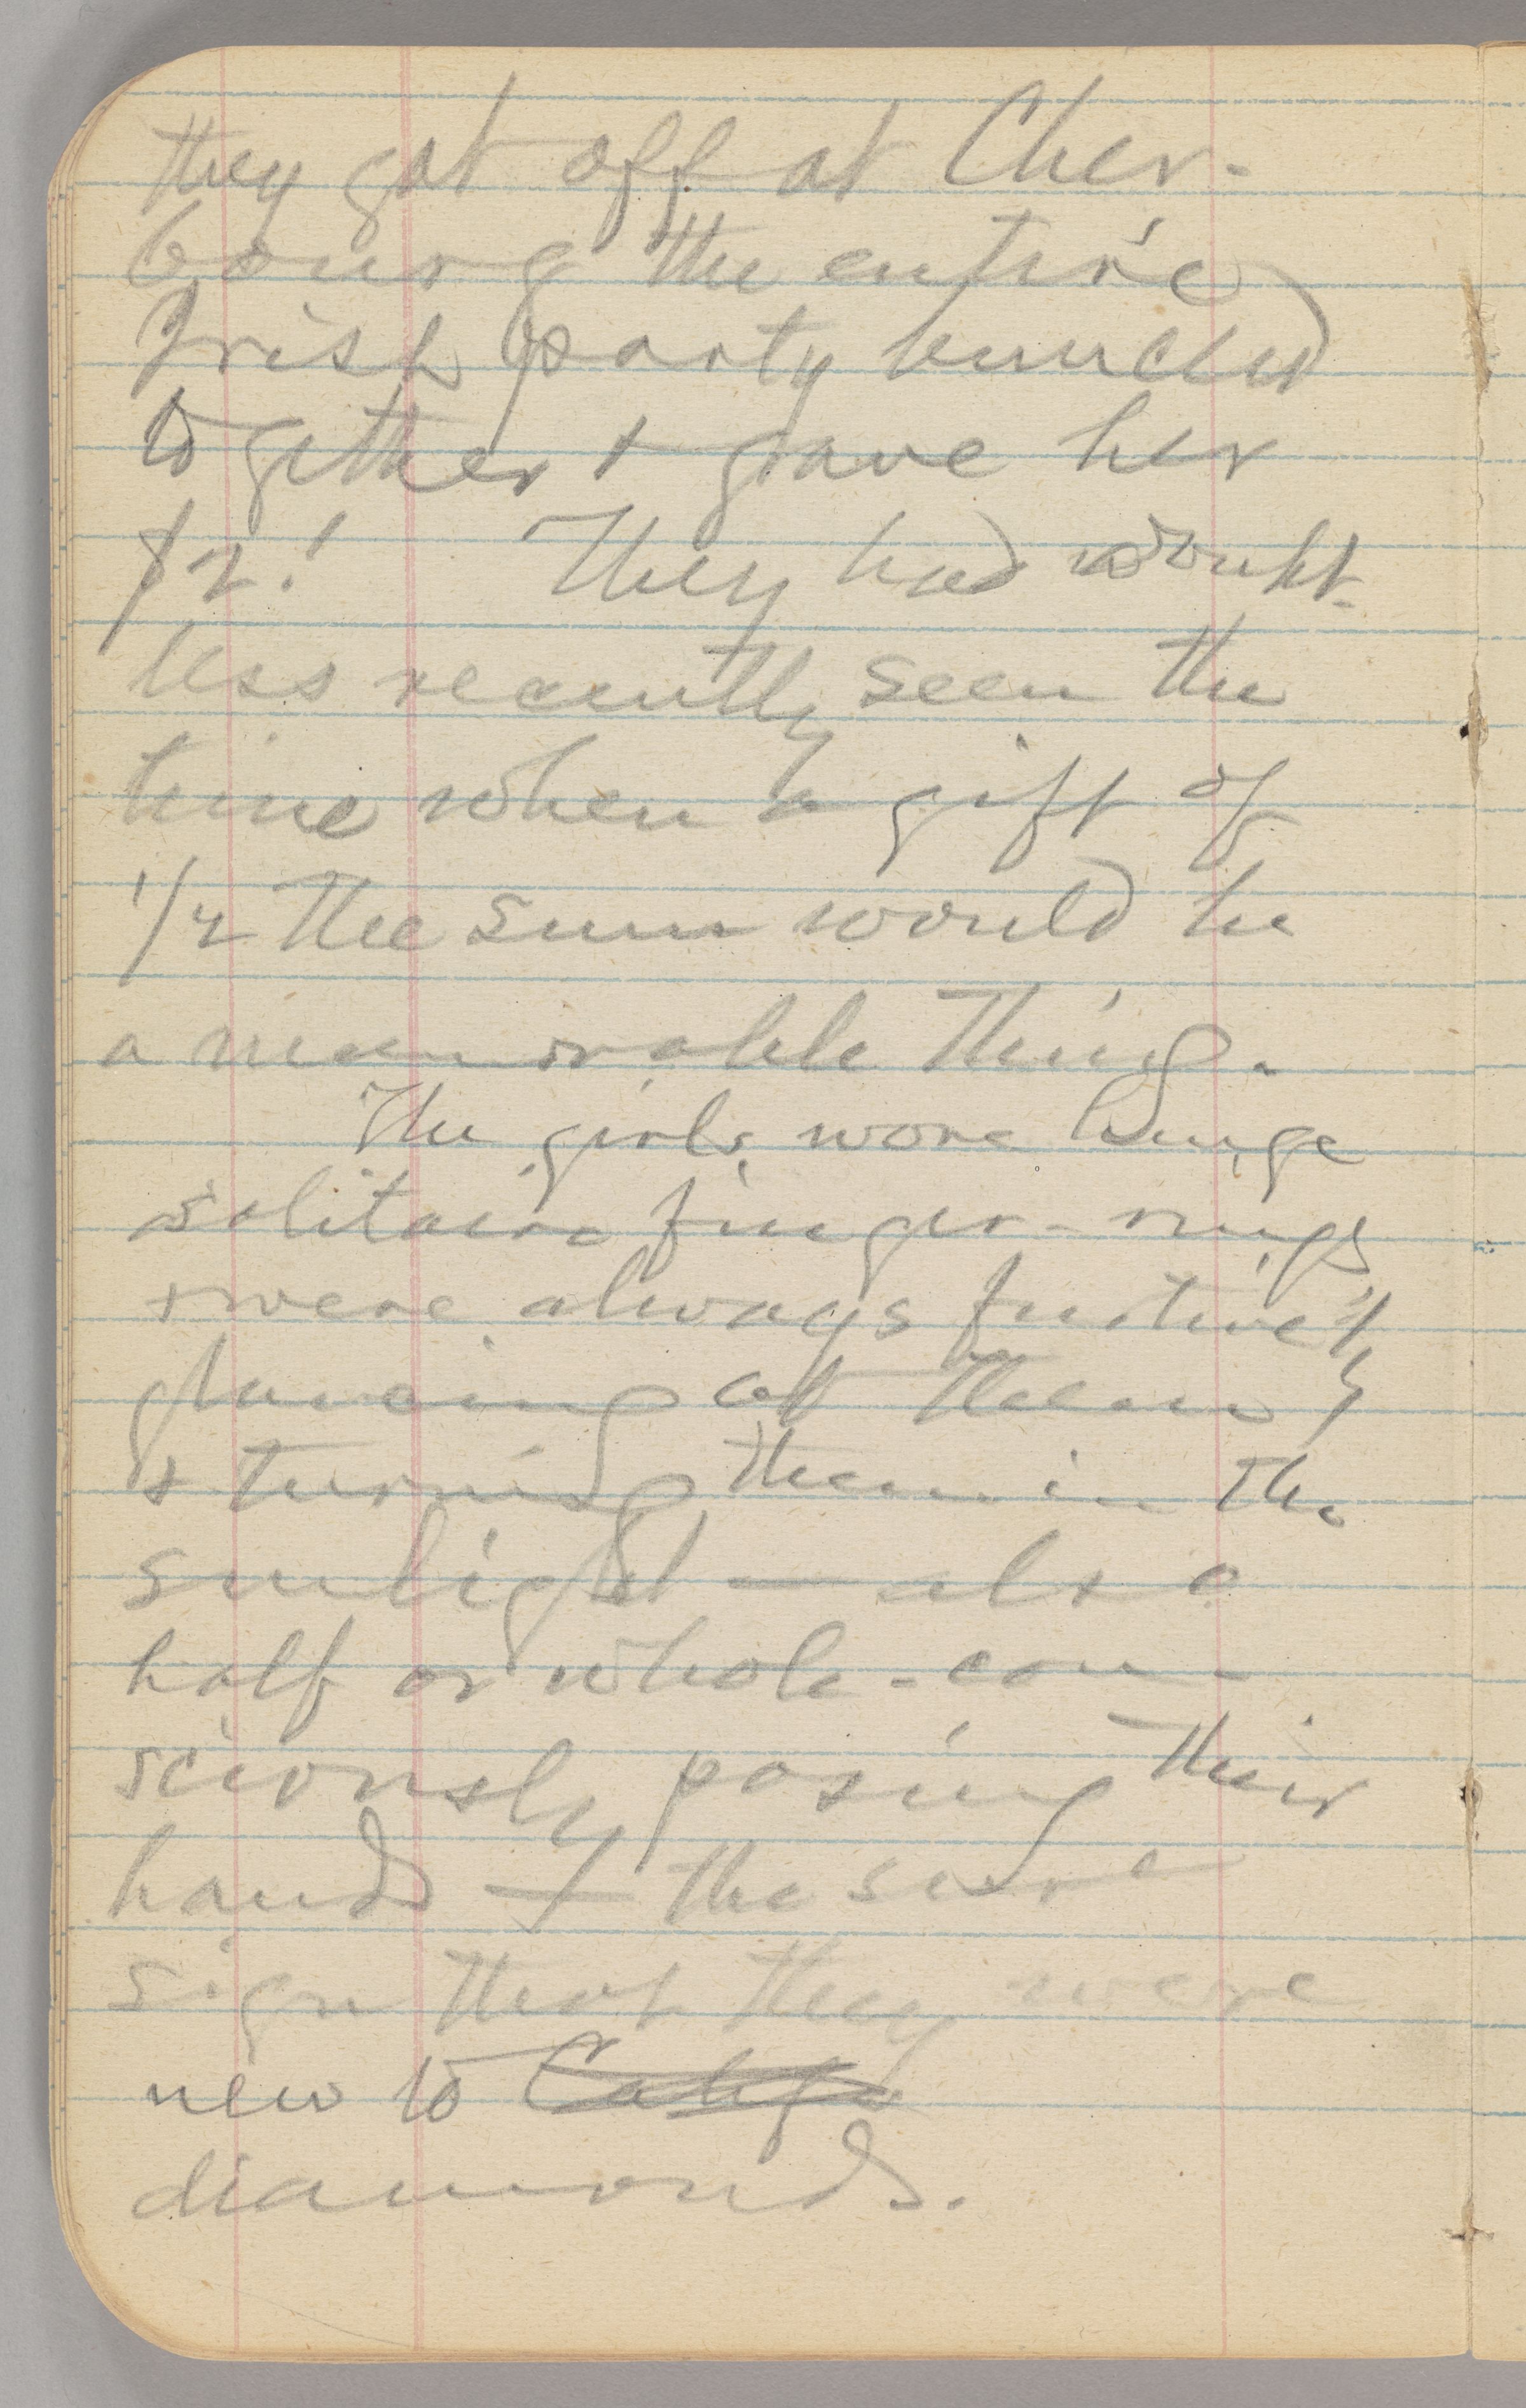 they got off at Cher-
bourg the entire
Irish party bunched
together + gave her
$2! They had doubt-
less recently seen the
time when a gift of
1/2 the sum would be
a memorable thing.
The girls wore huge
solitaire finger-rings
+ were always furtively
glancing at them
+ turning them in the
sunlight — also
half or whole-con-
sciously posing their
hands — + the sure
sign that they were
new to Califa
diamonds.